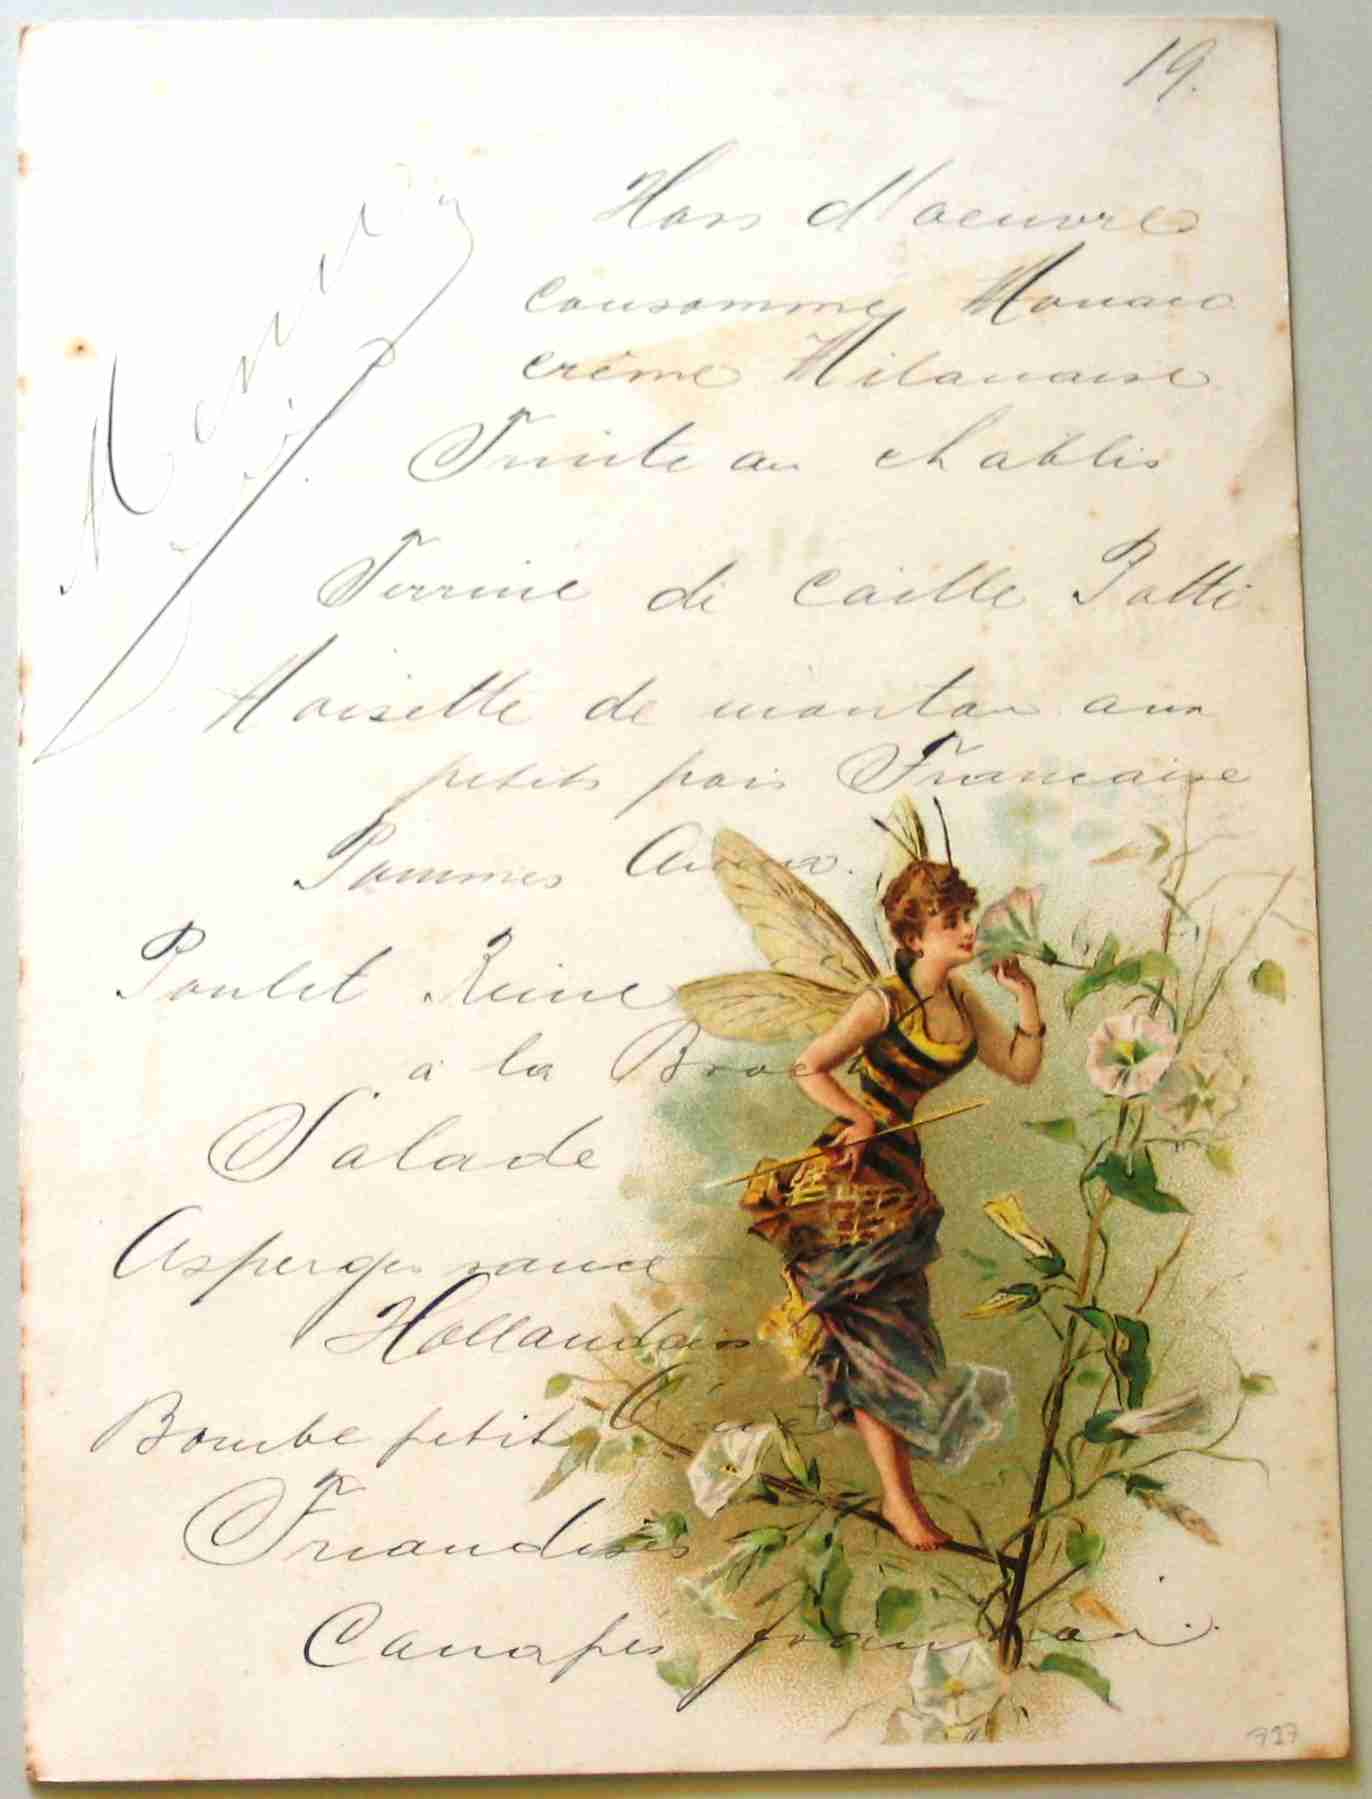 19.
Menu
Hors d'oeuvre
Consommé Monaco
Crème Milanaise
Truite au Chablis
Terrine de Caille Patti
Noisette de mouton aux
petits pois Francaise
Pommes
Poulet Reine
à la Broche
Salade
Asperges sauce
Hollandais
Bombe petit
Friandises
Canapés
727